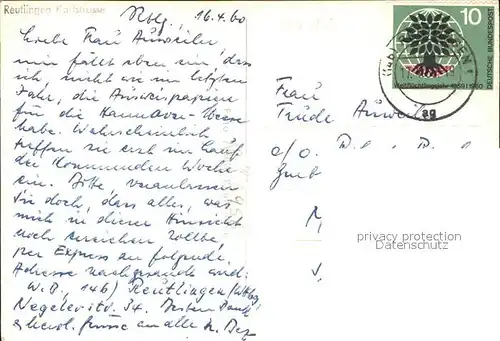 Reutlingen Karlstrasse
Rtlg., 16.4.60
Liebe Frau Auweiler,
mir fällt eben ein, dass
ich nicht wie im letzten
Jahr, die Ausweispapiere
für die Hannover-Messe
habe. Wahrscheinlich
treffen sie erst im Lauf
der kommenden Woche
ein. Bitte, veranlassen
Sie doch, dass alles, was
mich in dieser Hinsicht
noch erreichen sollte,
per Express an folgende
Adresse nachgesandt wird:
W.D., 14b) Reutlingen/Wttbg,
Negeleristr. 34. Besten Dank
& herzl. Grüsse an alle Ihr
10
DEUTSCHE BUNDESPOST
Weltflüchtlingsjahr 1959/1960
ag
Frau
Trude Auweil
c/o
privacy protection
Datenschutz